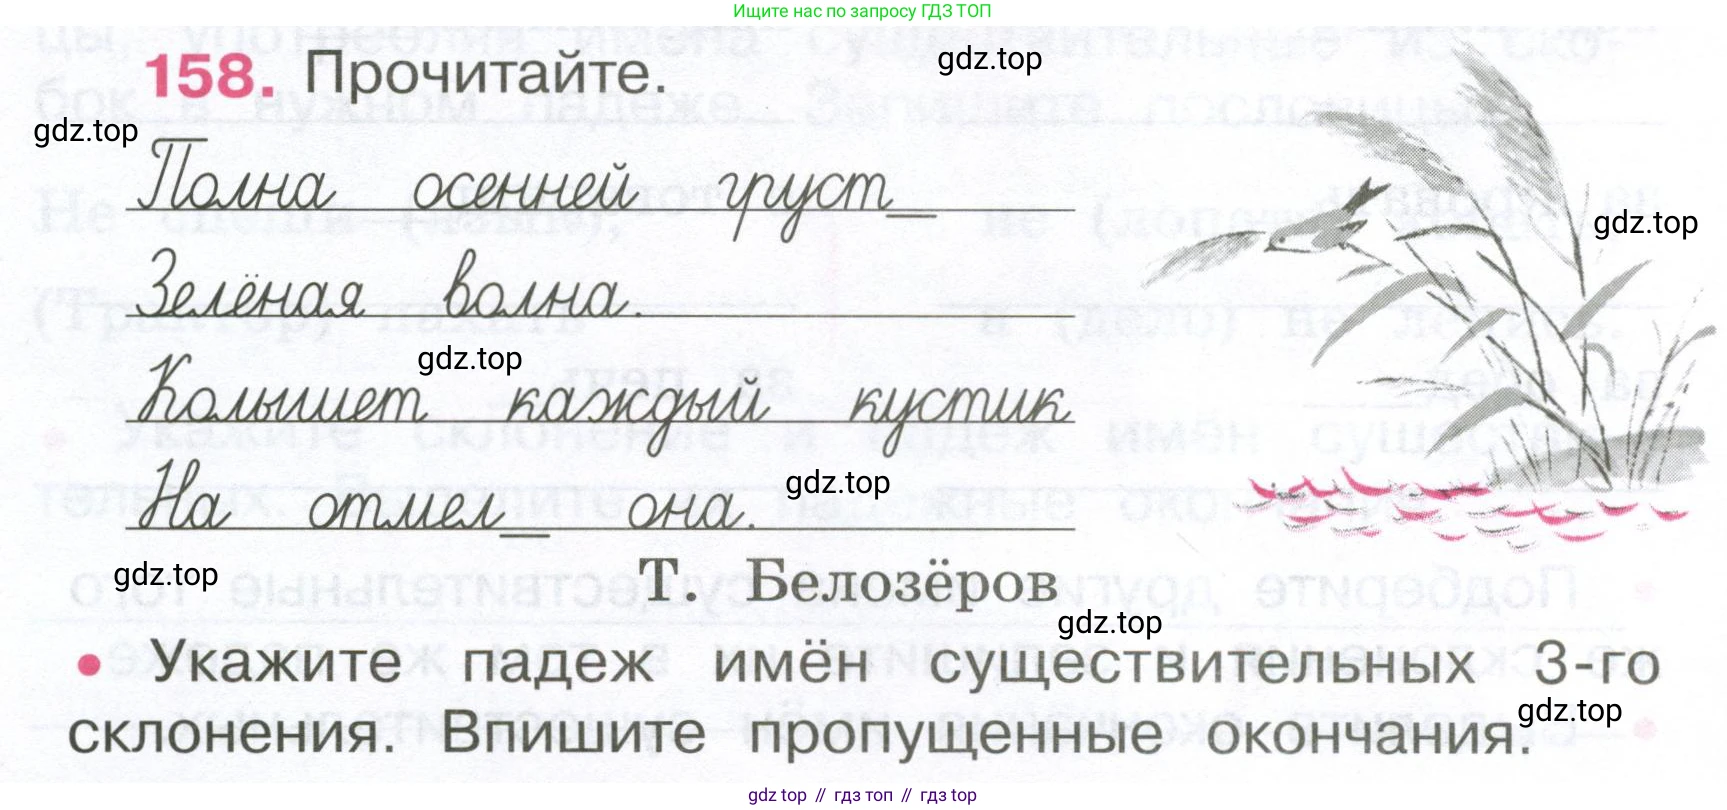 Ищите нас по запросу ГДЗ ТОП
158. Прочитайте.
gdz.top
gdz.top
Полна осенней груст_
gdz.top
Зелёная волна.
gdz.top
Колышет каждый кустик
gdz.top
На отмел_ она.
gdz.top
Т. Белозёров
gdz.top
• Укажите падеж имён существительных 3-го
gdz.top
склонения. Впишите пропущенные окончания.
gdz top // гдз топ // gdz top